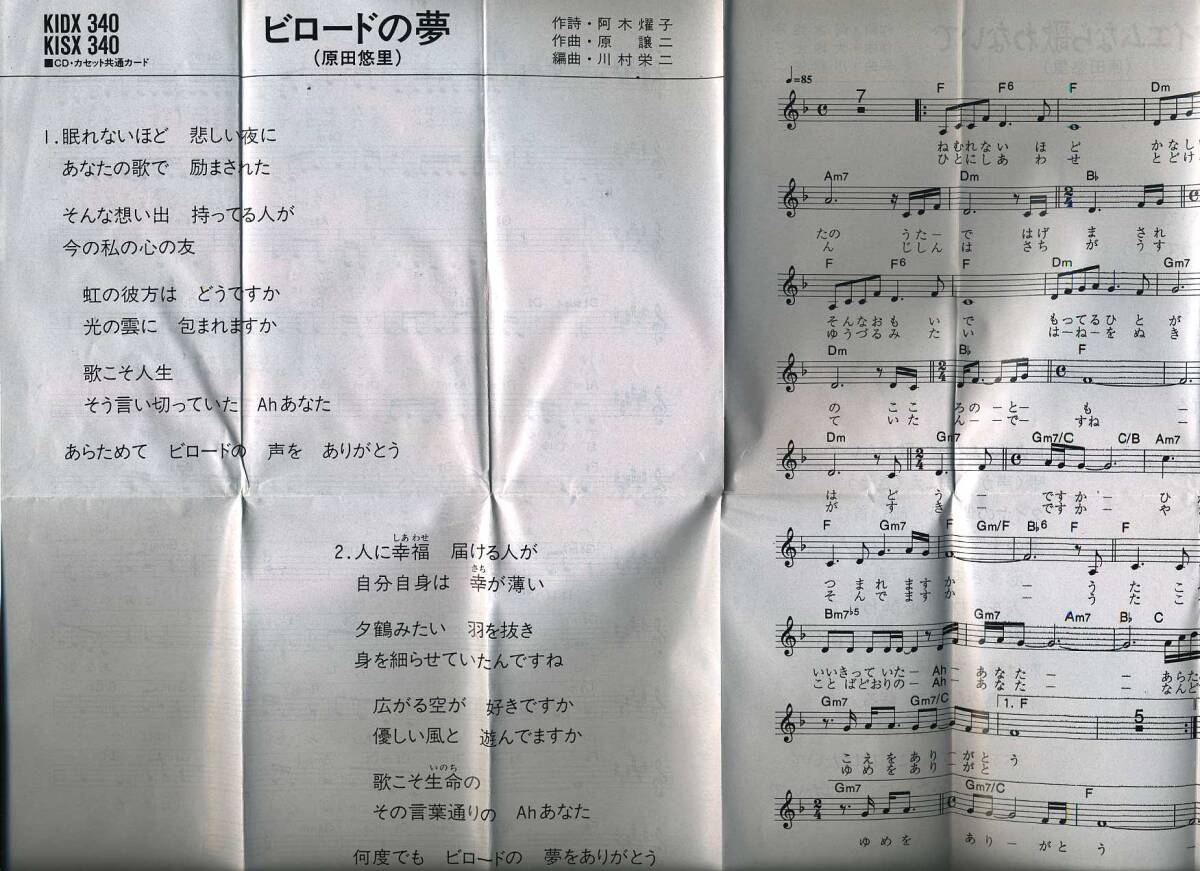 KIDX 340
KISX 340
■CD・カセット共通カード
ビロードの夢
(原田悠里)
作詩・阿木燿子
作曲・原 譲二
編曲・川村栄二
1.眠れないほど 悲しい夜に
あなたの歌で 励まされた
そんな想い出 持ってる人が
今の私の心の友
虹の彼方は どうですか
光の雲に 包まれますか
歌こそ人生
そう言い切っていた Ahあなた
あらためて ビロードの 声を ありがとう
2.人に幸福 届ける人が
しあわせ
自分自身は 幸が薄い
さち
夕鶴みたい 羽を抜き
身を細らせていたんですね
広がる空が 好きですか
優しい風と 遊んでますか
歌こそ生命の
いのち
その言葉通りの Ahあなた
何度でも ビロードの 夢をありがとう
♩=85
7
F F6 F Dm
ねむれない ほ ど かなし
ひとにしあ わ せ とどけ
Am7 Dm B♭
たの うたーで はげ ま され
ん じしんは さち が うす
F F6 F Dm Gm7
そんなおも い で もってるひ と が
ゆうづるみ た い はーねーを ぬ き
Dm B♭ F
の ここ ろのーとー も ー
て いた んーーでー すね ー
Dm Gm7 Gm7/C C/B Am7
は ど う ー ですかー ひ
が す き ー ですかー や
F Gm7 F Gm/F B♭6 F F
つ まれ ます か ー う た こ
そ んで ます か ー う た こ
Bm7♭5 Gm7 Am7 B♭ C
いいきって いたー Ahー あ な た ー ー あらた
こと ばどおりのー Ahー あ な た ー ー なんど
Gm7 Gm7/C 1. F
5
こ え を あ り ー が と う
ゆ め を あ り ー が と
Gm7 Gm7/C F
ゆ め を あ り ー が と う ー